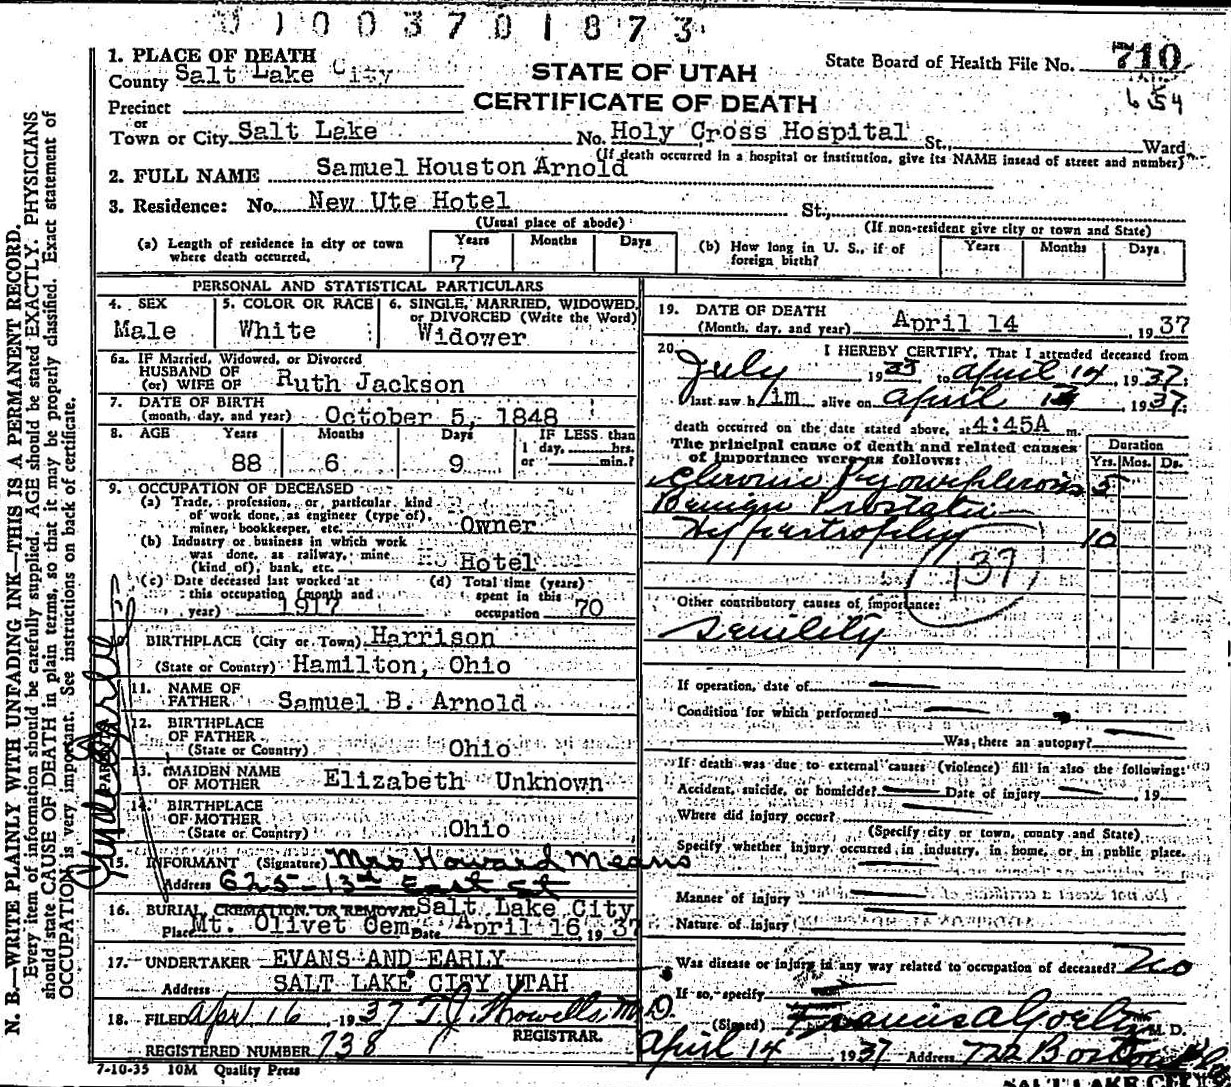 1003701873
1. PLACE OF DEATH
County Salt Lake City
STATE OF UTAH
State Board of Health File No. 710
654
CERTIFICATE OF DEATH
Precinct
or
Town or City Salt Lake No. Holy Cross Hospital St., Ward
(If death occurred in a hospital or institution, give its NAME insead of street and number)
2. FULL NAME Samuel Houston Arnold
3. Residence: No. New Ute Hotel St.,
(Usual place of abode) (If non-resident give city or town and State)
(a) Length of residence in city or town where death occurred. Years 7 Months Days
(b) How long in U. S., if of foreign birth? Years Months Days
PERSONAL AND STATISTICAL PARTICULARS
4. SEX 5. COLOR OR RACE 6. SINGLE, MARRIED, WIDOWED,
or DIVORCED (Write the Word)
Male White Widower
6a. IF Married, Widowed, or Divorced
HUSBAND OF
(or) WIFE OF Ruth Jackson
7. DATE OF BIRTH
(month, day, and year) October 5, 1848
8. AGE Years Months Days IF LESS than
1 day, hrs.
88 6 9 or min.?
9. OCCUPATION OF DECEASED
(a) Trade, profession, or particular kind
of work done, as engineer (type of),
miner, bookkeeper, etc. Owner
(b) Industry or business in which work
was done, as railway, mine
(kind of), bank, etc. Hotel
(c) Date deceased last worked at
this occupation (month and
year) 1917
(d) Total time (years)
spent in this
occupation 70
BIRTHPLACE (City or Town) Harrison
(State or Country) Hamilton, Ohio
11. NAME OF
FATHER Samuel B. Arnold
12. BIRTHPLACE
OF FATHER
(State or Country) Ohio
13. MAIDEN NAME
OF MOTHER Elizabeth Unknown
14. BIRTHPLACE
OF MOTHER
(State or Country) Ohio
PARENTS
15. INFORMANT (Signature) Mrs Howard Means
Address 625-13th East St
16. BURIAL CREMATION, OR REMOVAL Salt Lake City
Place Mt. Olivet Cem. Date April 16, 1937
17. UNDERTAKER EVANS AND EARLY
Address SALT LAKE CITY UTAH
18. FILED Apr 16 1937 T.J. Howells, M.D.
REGISTRAR.
REGISTERED NUMBER 738
7-10-35 10M Quality Press
19. DATE OF DEATH
(Month, day, and year) April 14, 1937
20. I HEREBY CERTIFY, That I attended deceased from
July 19 to April 14 1937;
I last saw him alive on April 1937;
death occurred on the date stated above, at 4:45A m.
The principal cause of death and related causes
of importance were as follows:
Duration
Yrs. Mos. Ds.
Chronic 5
Benign Prostatic
Hypertrophy 10
137
Other contributory causes of importance:
Senility
If operation, date of
Condition for which performed
Was there an autopsy?
If death was due to external causes (violence) fill in also the following:
Accident, suicide, or homicide? Date of injury , 19
Where did injury occur?
(Specify city or town, county and State)
Specify whether injury occurred in industry, in home, or in public place.
Manner of injury
Nature of injury
Was disease or injury in any way related to occupation of deceased? No
If so, specify
(Signed) Francis A M. D.
April 14 1937 Address 722 Boston
N. B.—WRITE PLAINLY WITH UNFADING INK—THIS IS A PERMANENT RECORD.
Every item of information should be carefully supplied. AGE should be stated EXACTLY. PHYSICIANS
should state CAUSE OF DEATH in plain terms, so that it may be properly classified. Exact statement of
OCCUPATION is very important. See instructions on back of certificate.